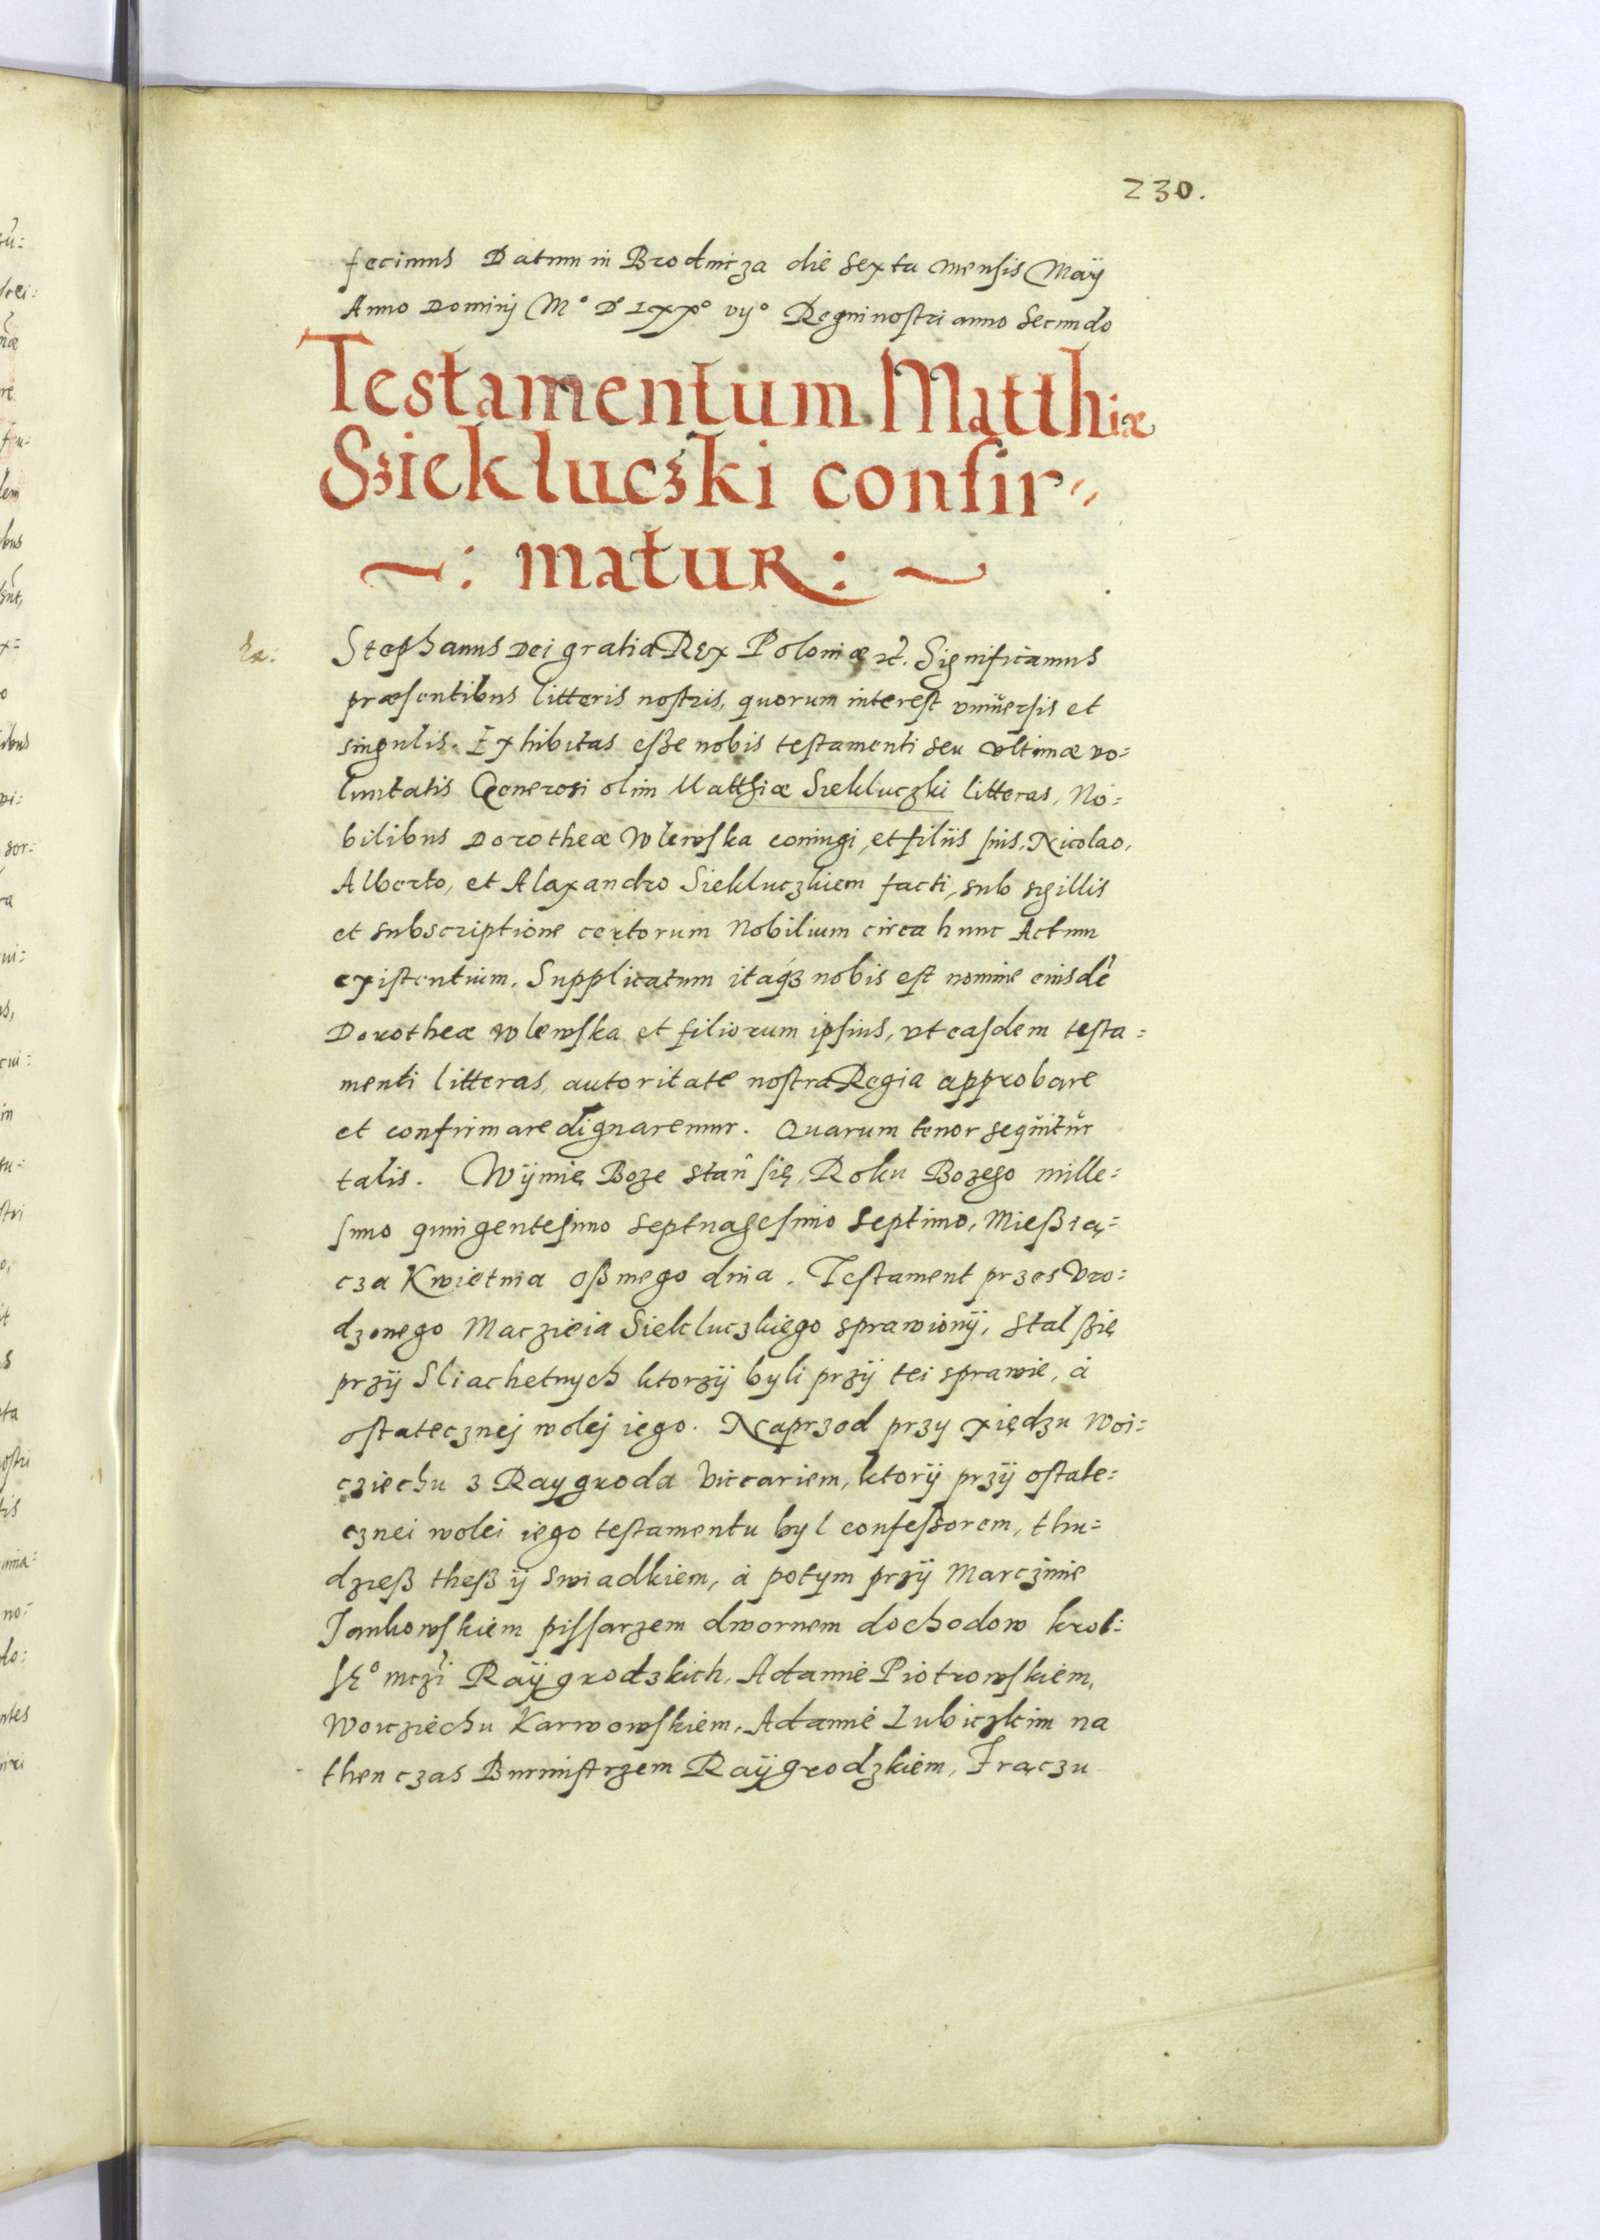 230.
fecimus Datum in Brodnicza die sexta mensis Maÿ
Anno Dominij M° D° Lxx° vij° Regni nostri anno Secundo
Testamentum Matthiæ
Sziekluczki confir⸗
~: matur: ~
Stephanus Dei gratia Rex Poloniæ etc. Significamus
præsentibus litteris nostris, quorum interest vniuersis et
singulis. Exhibitas eße nobis testamenti seu vltimæ vo⸗
luntatis Generosi olim Matthiæ Siekluczki litteras, No⸗
bilibus Dorotheæ Wlewska coniugi, et filiis suis, Nicolao,
Alberto, et Alaxandro Siekluczkiem facti, sub sigillis
et subscriptione certorum Nobilium circa hunc Actum
existentium. Supplicatum itaq3 nobis est nomine eiusdē
Dorotheæ Wlewska et filiorum ipsius, vt easdem testa⸗
menti litteras, autoritate nostra Regia approbare
et confirmare dignaremur. Quarum tenor sequitur
talis. Wÿmię Boze stań się, Roku Bozego mille⸗
simo quingentesimo septuagesimo Septimo, Mießią⸗
cza Kwietnia oßmego dnia. Testament przes Vro⸗
dzonego Maczieia Siekluczkiego sprawionÿ, stal ßię
przÿ Sliachetnych ktorzÿ byli przÿ tei sprawie, á
ostatecznej wolej iego. Naprzod przy xiędzu Woi⸗
cziechu z Raygroda Viccariem, ktorÿ przÿ ostate⸗
cznei wolei iego testamentu byl confeßorem, thu⸗
dzieß theß ÿ swiadkiem, á potym przÿ Marczinie
Jankowskiem pissarzem dwornem dochodow krol⸗
sk° mczi Raÿgrodzkich, Adamie Piotrowskiem,
Woicziechu Karwowskiem, Adamie Lubiczkim na
then czas Burmistrzem Raÿgrodzkiem, Frączu